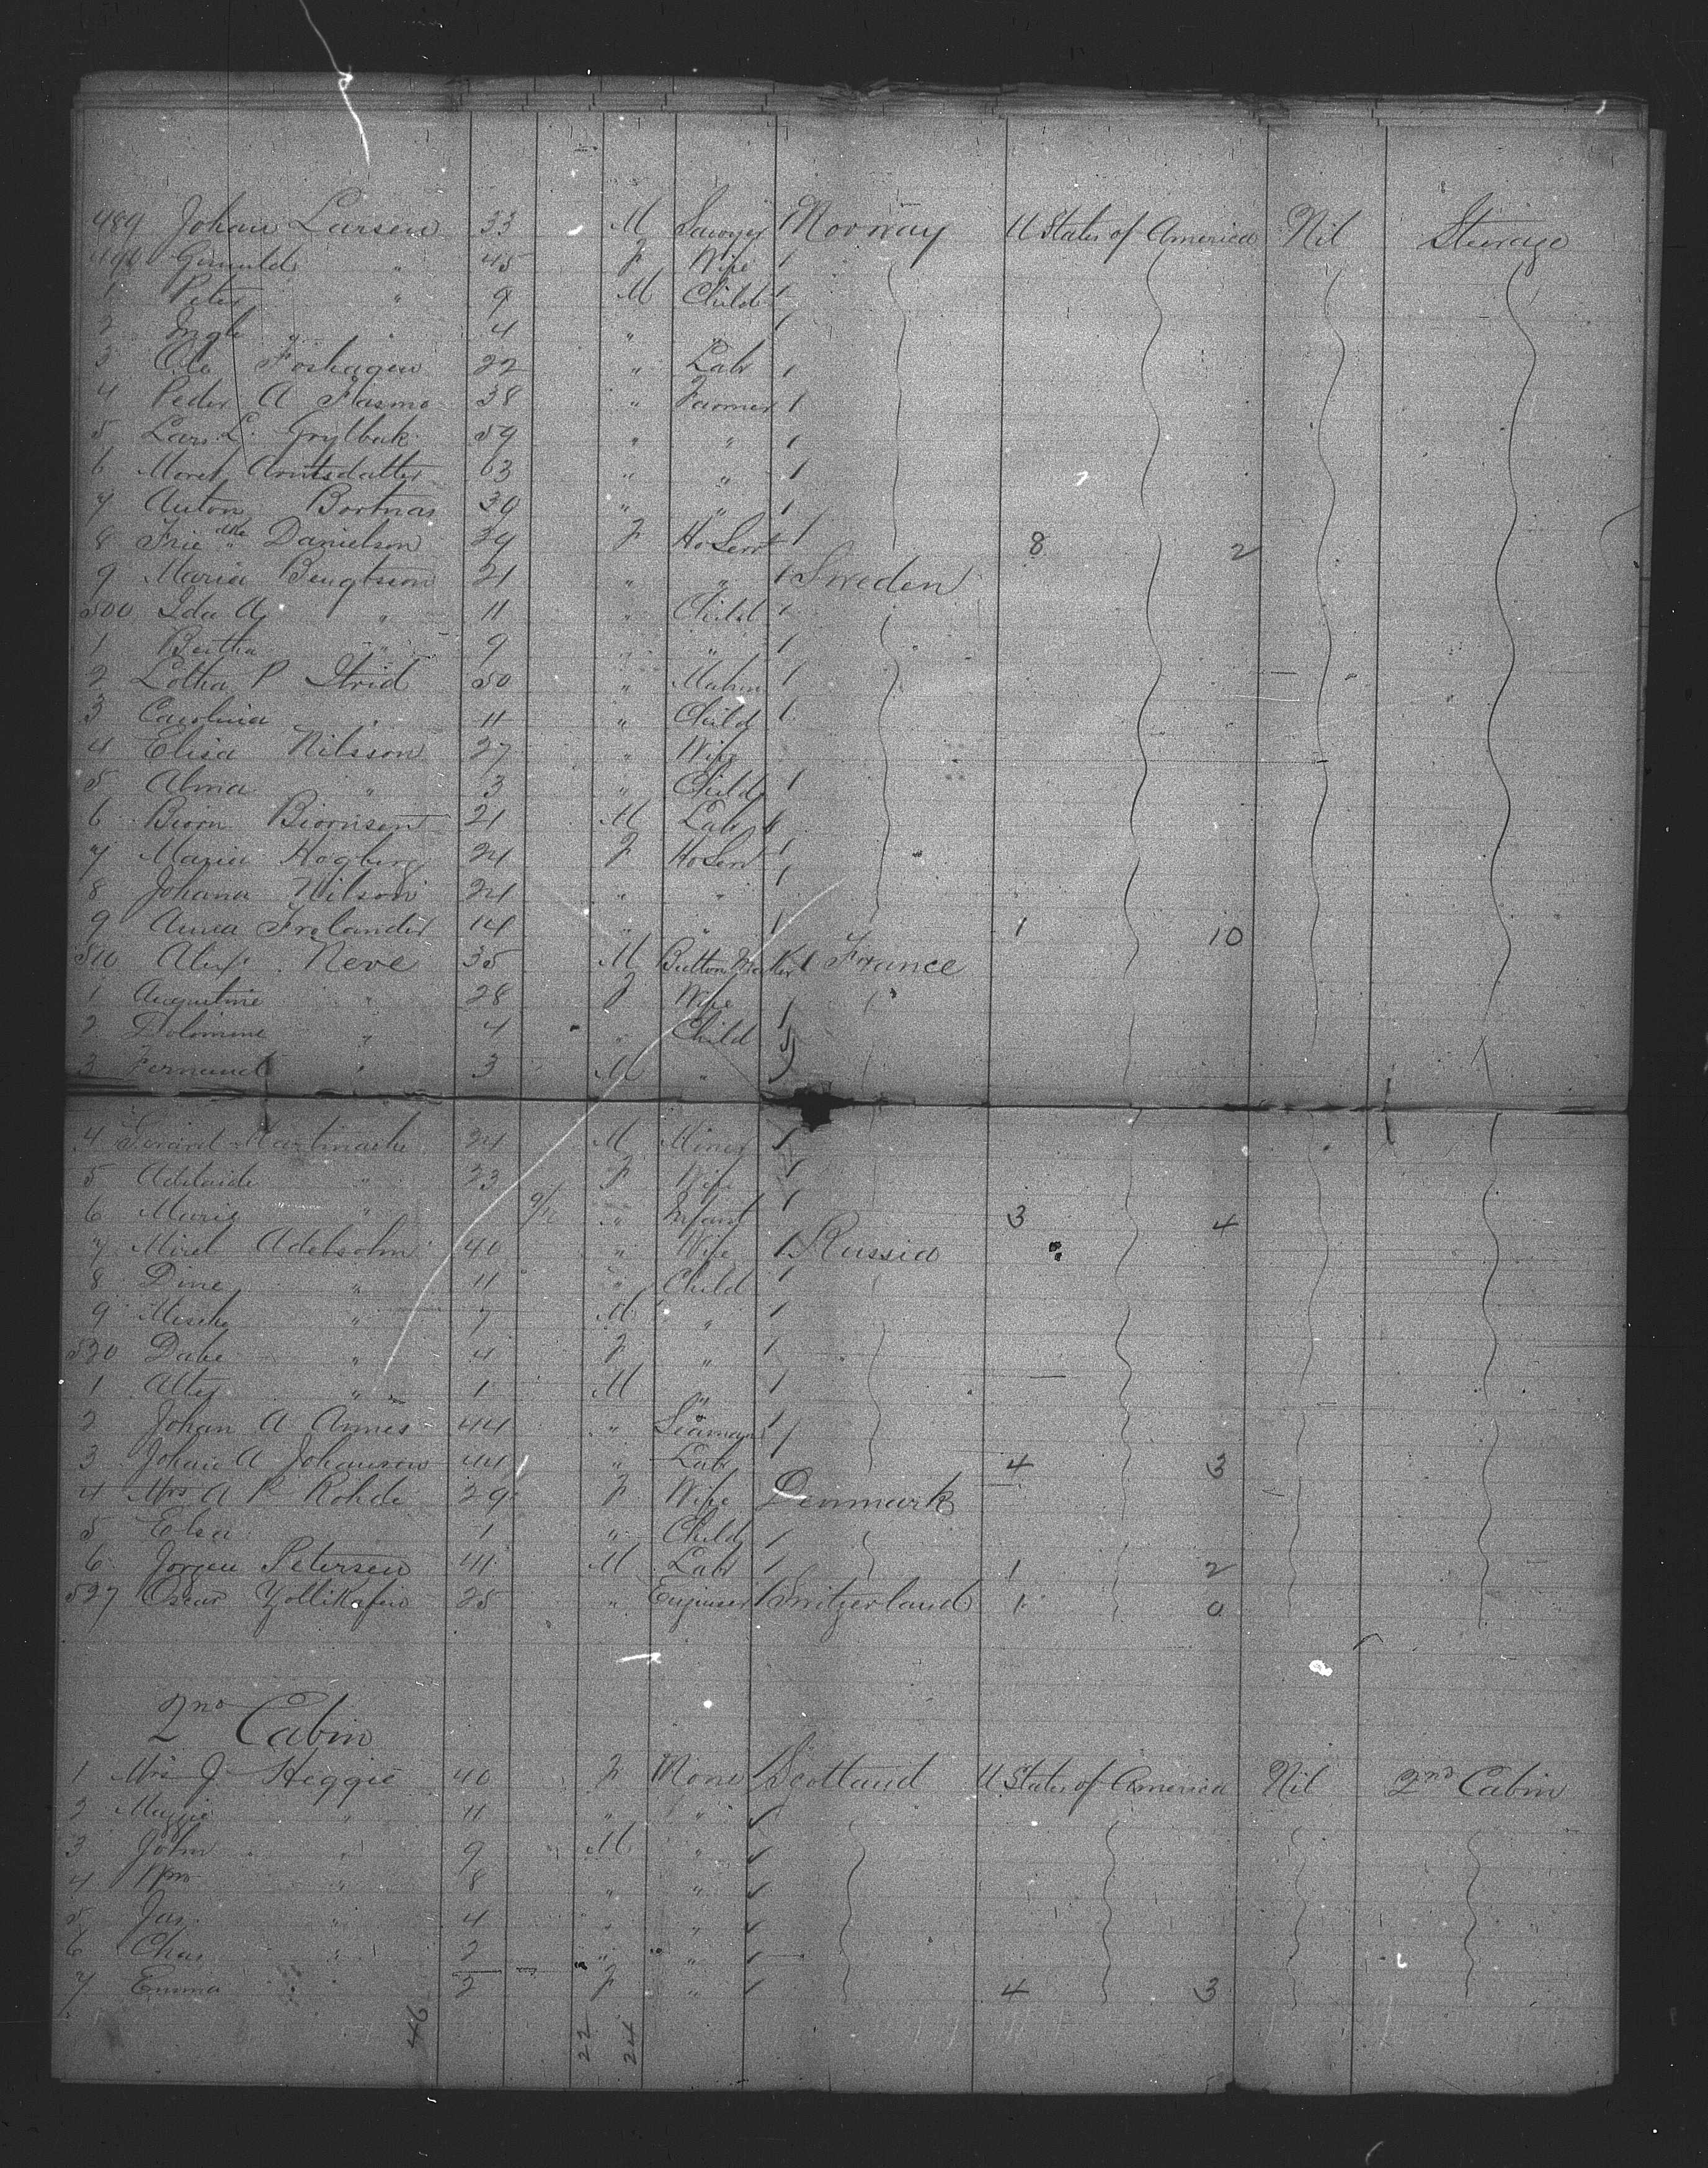 489 Johan Larsen 33 M Sawyer 1 Norway U States of America Nil Steerage
490 Gunuld " 45 F Wife 1
1 Peter " 9 M Child 1
2 Ingb " 4 " 1
3 Ole Foshagen 22 " Labr 1
4 Peder A Flasmo 38 " Farmer 1
5 Lars L. Grytbak 59 " " 1
6 Moret Arntsdatter 63 " " 1
7 Anton Bortnas 39 " " 1
8 Frie dke Danielson 29 F Ho Servt 1 8 2
9 Maria Bengtson 21 " " 1 Sweden
500 Ida A " 11 " Child 1
1 Bertha " 9 " " 1
2 Lotha P Strid 50 " 1
3 Carolina " 11 " Child 1
4 Elisa Nilsson 27 " Wife
5 Alma " 3 " Child 1
6 Biorn Biornsen 21 M Labr 1
7 Maria Hogberg 24 F Ho Servt 1
8 Johana Nilson 24 " " 1
9 Anna Frelander 14 " " 1 1 10
510 Alex. Neve 35 M Button Maker 1 France
1 Augustine " 28 F Wife 1
2 " 4 " Child 1
3 Fernand " 3 M "
4 24 M Miner 1
5 Adelaide " 23 F Wife 1
6 Marie " 9/12 " Infant 1 3 4
7 Mirel Adelsohn 40 " Wife 1 Russia
8 Dine " 11 " Child 1
9 " 7 M " 1
520 Dabe " 4 F " 1
1 Alter " 1 M " 1
2 Johan A Annes 44 " Seaman 1
3 Johan A Johanson 44 " Labr 1 4 3
4 Mrs A P Rohde 29 F Wife Denmark
5 Elsa 1 " Child 1
6 Jorgen Petersen 41 M Labr 1 1 2
527 Oscar Zollikofer 25 " Engineer 1 Switzerland 1 0
2nd Cabin
1 Mrs J Heggie 40 F None 1 Scotland U States of America Nil 2nd Cabin
2 Maggie " 11 " "
3 John " 9 M "
4 Wm " 8 " "
5 Jas " 4 " "
6 Chas " 2 " " 1
7 Emma " 2 F " 1 4 3
46 22 24